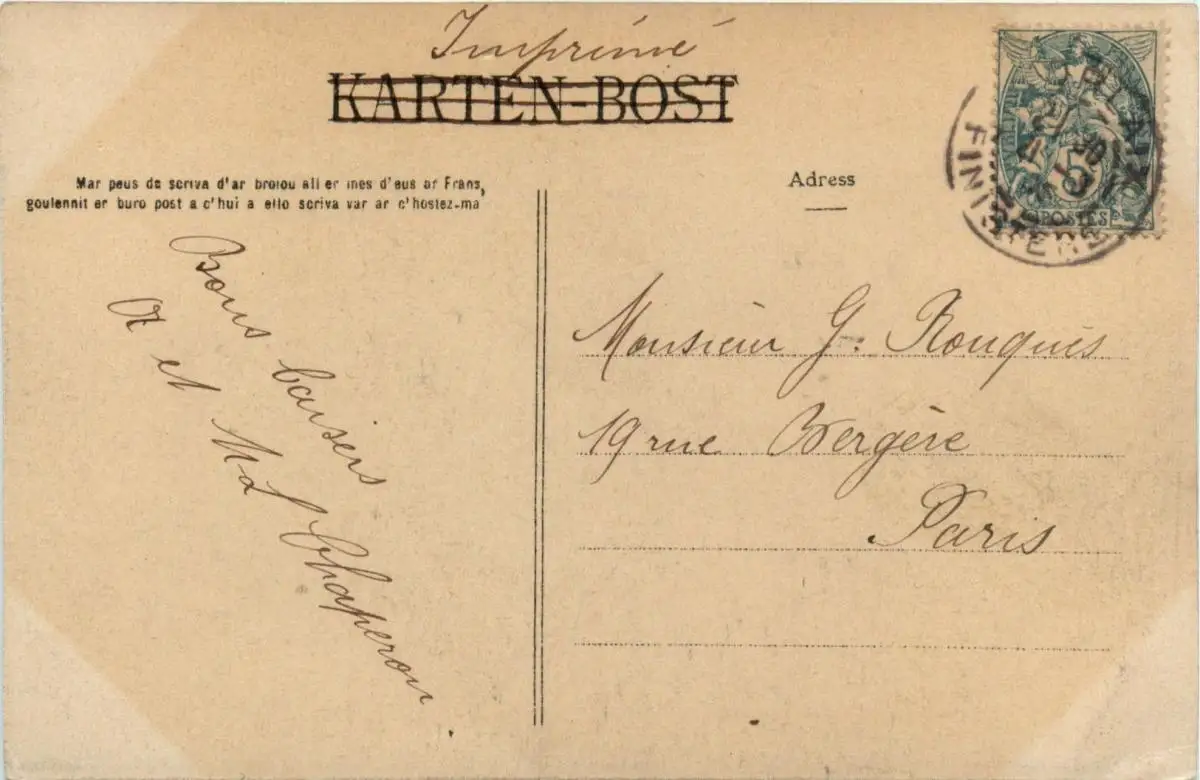 Imprimé
KARTEN-BOST
Mar peus da scriva d'ar broiou all er mes d'eus ar Frans,
goulennit er buro post a c'hui a ello scriva var ar c'hostez-ma
Adress
5
POSTES
FINISTERE
Bons baisers
et Chaperon
Monsieur G. Rouquès
19 rue Bergère
Paris